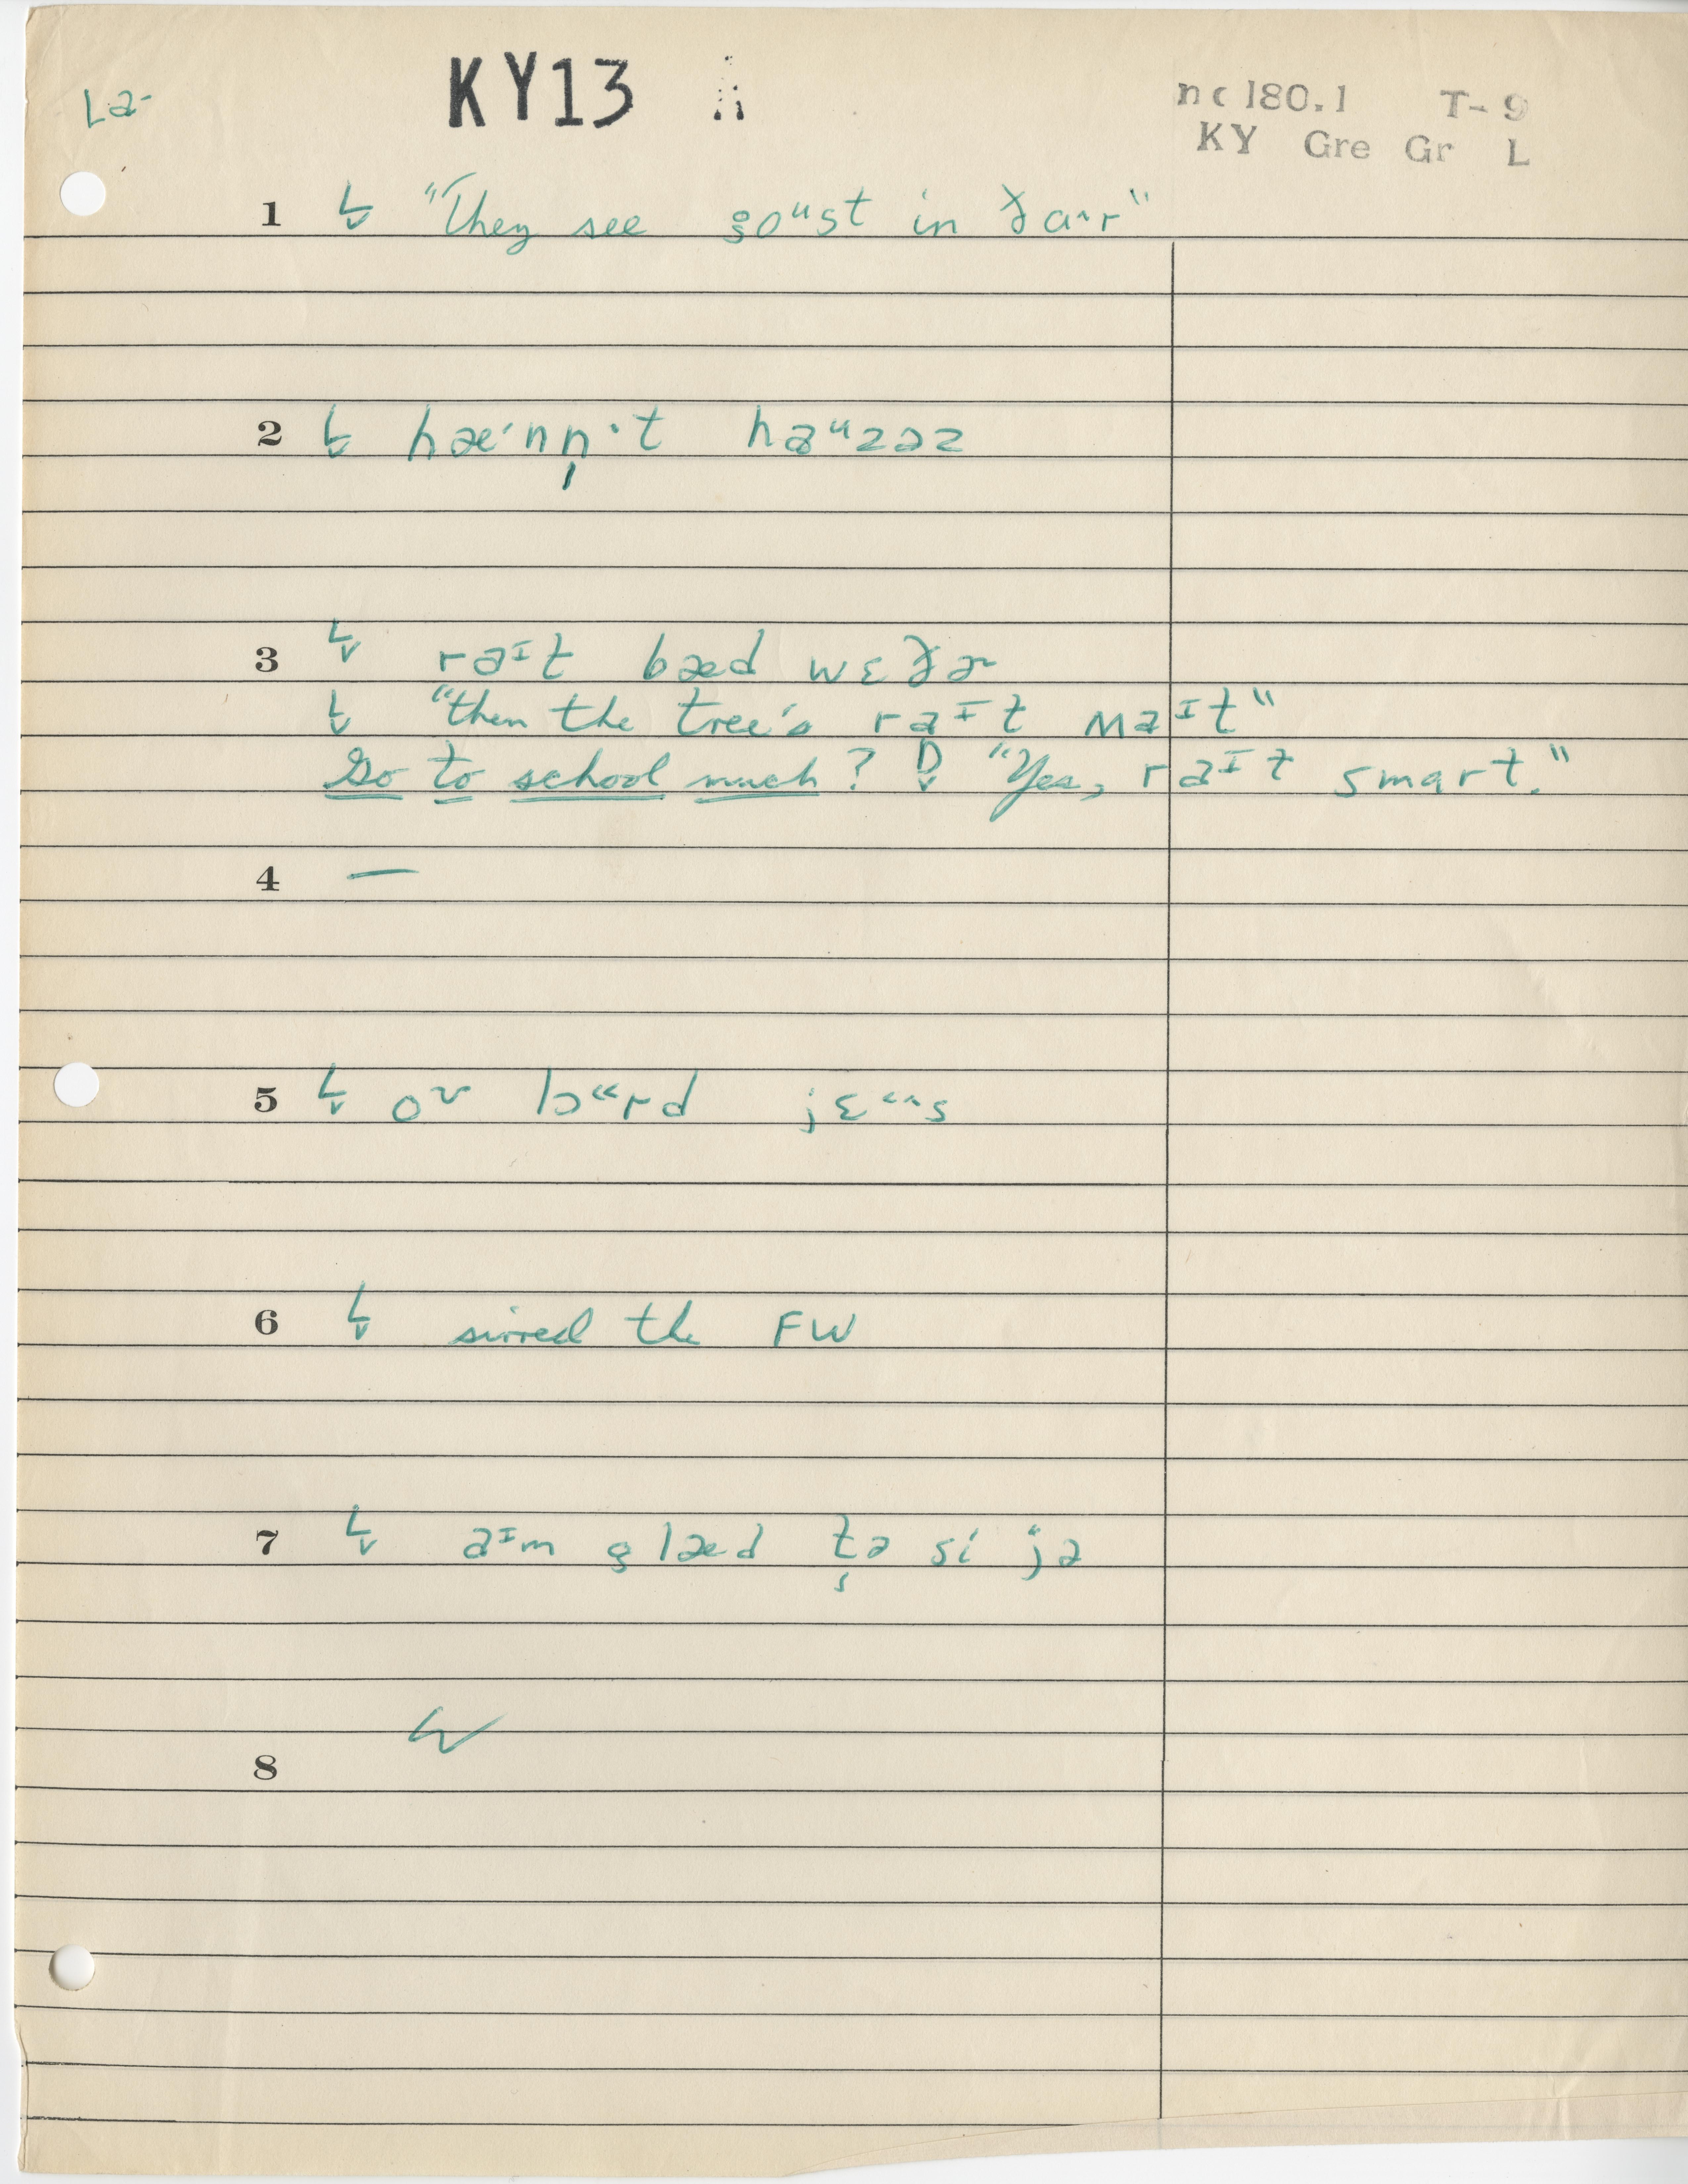 La-
KY13 A
nc 180.1 T-9
KY Gre Gr L
1 "They see goᵘst in ðaˑr"
2 hæˑnn̩ˑt haᵘzəz
3 raᴵt bæd wɛðɚ
"then the tree's raᴵt waᴵt"
Go to school much? D "Yes, raᴵt smart."
4 —
5 jɛs
6 sirred the FW
7 aᴵm glæd t̬ə si jə
8